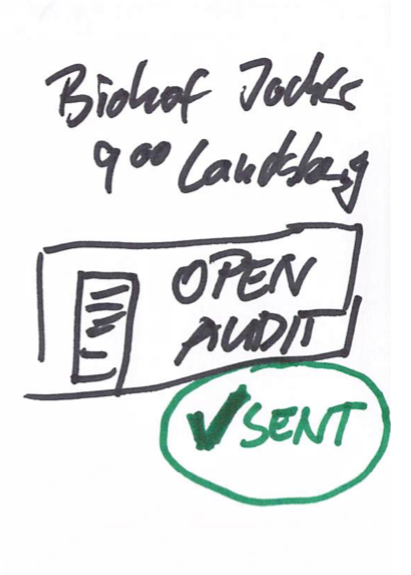 Biohof Jockes
9⁰⁰ Landsberg
OPEN
AUDIT
✓ SENT